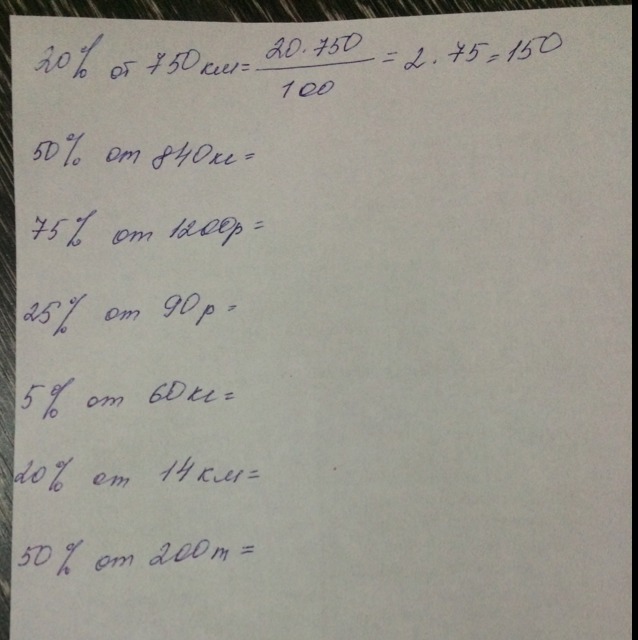 20% от 750км = 20·750/100 = 2·75 = 150
50% от 840кг =
75% от 1200р =
25% от 90р =
5% от 60кг =
20% от 14км =
50% от 200т =